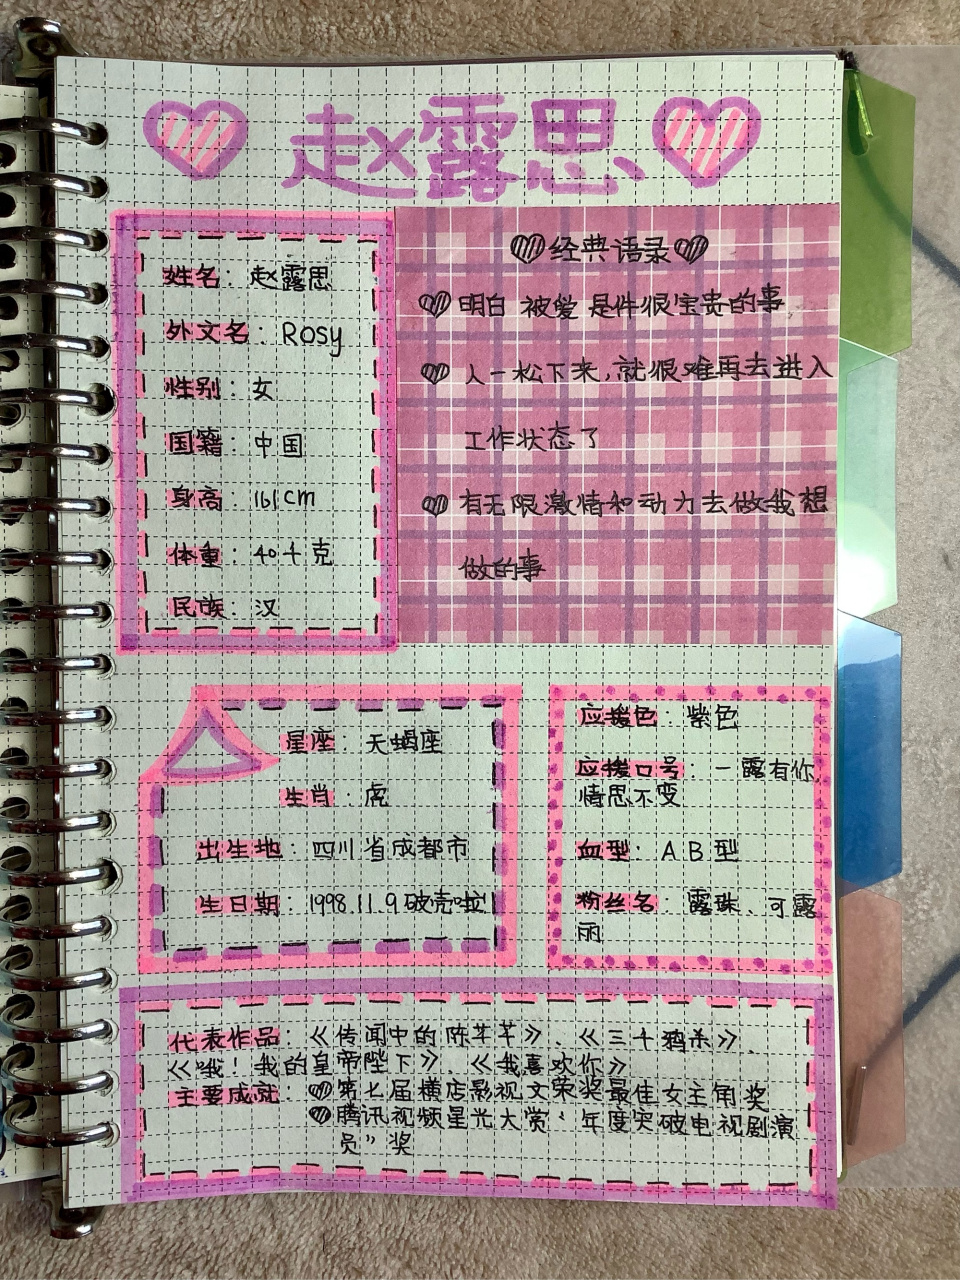 赵露思
姓名：赵露思
外文名：Rosy
性别：女
国籍：中国
身高：161cm
体重：40千克
民族：汉
经典语录
明白 被爱 是件很宝贵的事
人一松下来，就很难再去进入
工作状态了
有无限激情和动力去做我想
做的事
星座：天蝎座
生肖：虎
出生地：四川省成都市
生日期：1998.11.9破壳啦!
应援色：紫色
应援口号：一露有你
情思不变
血型：AB型
粉丝名：露珠、可露
丽
代表作品：《传闻中的陈芊芊》、《三千鸦杀》、
《哦！我的皇帝陛下》、《我喜欢你》
主要成就：第七届横店影视文荣奖最佳女主角奖
腾讯视频星光大赏“年度突破电视剧演
员”奖